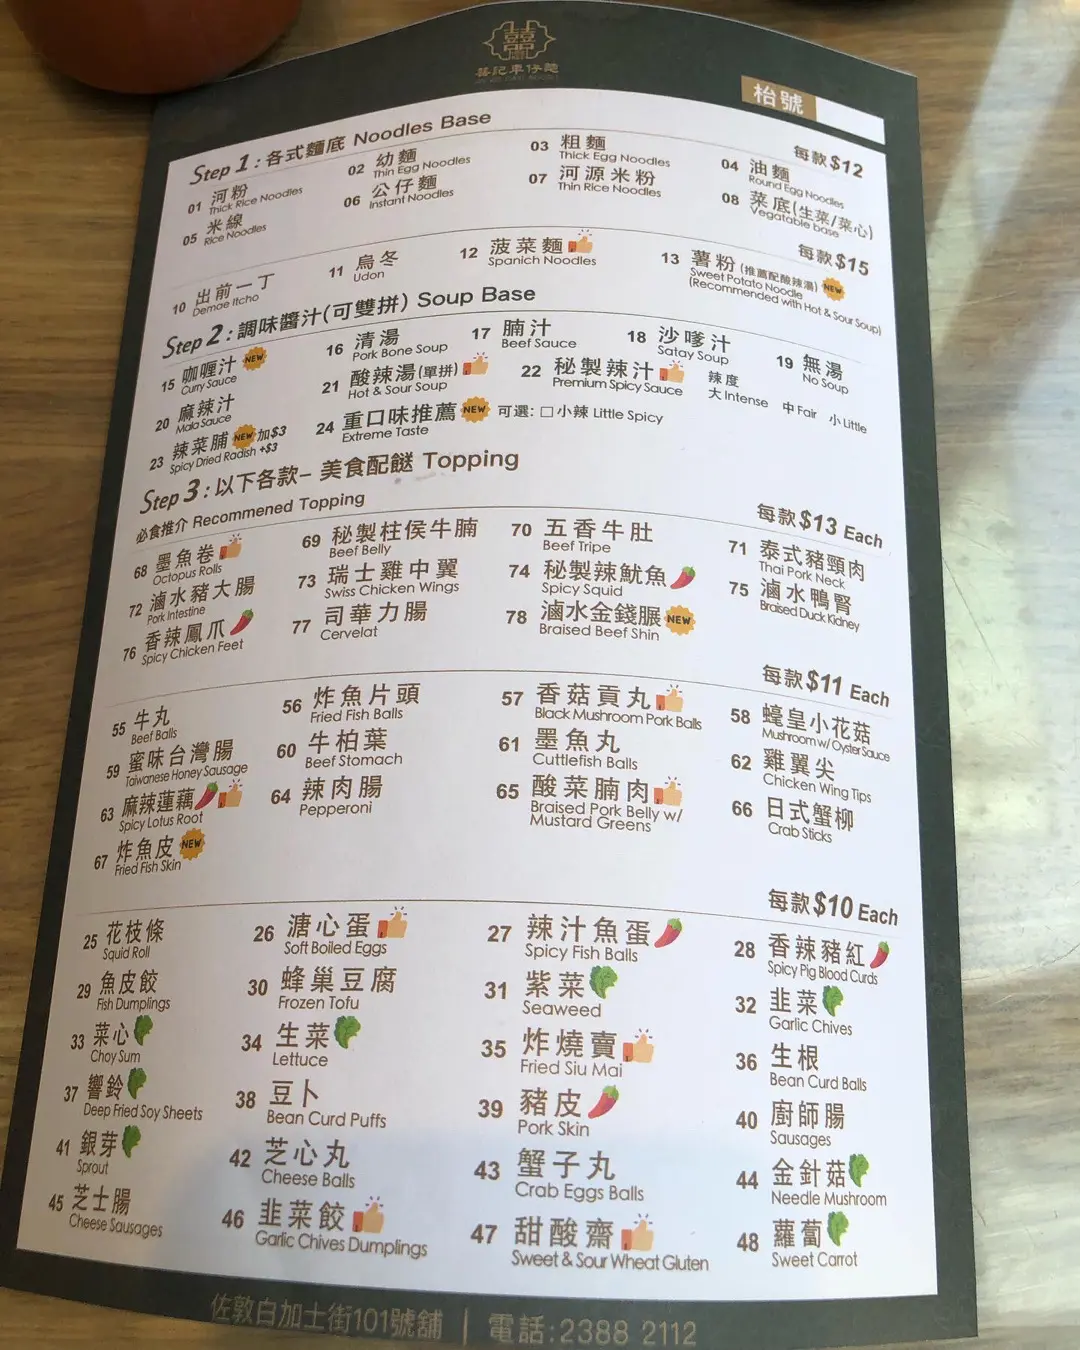 囍
喜記車仔麵
枱號
Step 1 : 各式麵底 Noodles Base
每款$12
01 河粉 Thick Rice Noodles
02 幼麵 Thin Egg Noodles
03 粗麵 Thick Egg Noodles
04 油麵 Round Egg Noodles
05 米線 Rice Noodles
06 公仔麵 Instant Noodles
07 河源米粉 Thin Rice Noodles
08 菜底(生菜/菜心) Vegatable base
每款$15
10 出前一丁 Demae Itcho
11 烏冬 Udon
12 菠菜麵 Spanich Noodles
13 薯粉(推薦配酸辣湯) NEW Sweet Potato Noodle (Recommended with Hot & Sour Soup)
Step 2 : 調味醬汁(可雙拼) Soup Base
15 咖喱汁 NEW Curry Sauce
16 清湯 Pork Bone Soup
17 腩汁 Beef Sauce
18 沙嗲汁 Satay Soup
19 無湯 No Soup
20 麻辣汁 Mala Sauce
21 酸辣湯(單拼) Hot & Sour Soup
22 秘製辣汁 Premium Spicy Sauce
辣度 大Intense 中Fair 小Little
23 辣菜脯 NEW 加$3 Spicy Dried Radish +$3
24 重口味推薦 NEW 可選: □小辣 Little Spicy Extreme Taste
Step 3 : 以下各款– 美食配餸 Topping
必食推介 Recommened Topping
每款$13 Each
68 墨魚卷 Octopus Rolls
69 秘製柱侯牛腩 Beef Belly
70 五香牛肚 Beef Tripe
71 泰式豬頸肉 Thai Pork Neck
72 滷水豬大腸 Pork Intestine
73 瑞士雞中翼 Swiss Chicken Wings
74 秘製辣魷魚 Spicy Squid
75 滷水鴨腎 Braised Duck Kidney
76 香辣鳳爪 Spicy Chicken Feet
77 司華力腸 Cervelat
78 滷水金錢𦟌 NEW Braised Beef Shin
每款$11 Each
55 牛丸 Beef Balls
56 炸魚片頭 Fried Fish Balls
57 香菇貢丸 Black Mushroom Pork Balls
58 蠔皇小花菇 Mushroom w/ Oyster Sauce
59 蜜味台灣腸 Taiwanese Honey Sausage
60 牛柏葉 Beef Stomach
61 墨魚丸 Cuttlefish Balls
62 雞翼尖 Chicken Wing Tips
63 麻辣蓮藕 Spicy Lotus Root
64 辣肉腸 Pepperoni
65 酸菜腩肉 Braised Pork Belly w/ Mustard Greens
66 日式蟹柳 Crab Sticks
67 炸魚皮 NEW Fried Fish Skin
每款$10 Each
25 花枝條 Squid Roll
26 溏心蛋 Soft Boiled Eggs
27 辣汁魚蛋 Spicy Fish Balls
28 香辣豬紅 Spicy Pig Blood Curds
29 魚皮餃 Fish Dumplings
30 蜂巢豆腐 Frozen Tofu
31 紫菜 Seaweed
32 韭菜 Garlic Chives
33 菜心 Choy Sum
34 生菜 Lettuce
35 炸燒賣 Fried Siu Mai
36 生根 Bean Curd Balls
37 響鈴 Deep Fried Soy Sheets
38 豆卜 Bean Curd Puffs
39 豬皮 Pork Skin
40 廚師腸 Sausages
41 銀芽 Sprout
42 芝心丸 Cheese Balls
43 蟹子丸 Crab Eggs Balls
44 金針菇 Needle Mushroom
45 芝士腸 Cheese Sausages
46 韭菜餃 Garlic Chives Dumplings
47 甜酸齋 Sweet & Sour Wheat Gluten
48 蘿蔔 Sweet Carrot
佐敦白加士街101號舖 | 電話:2388 2112